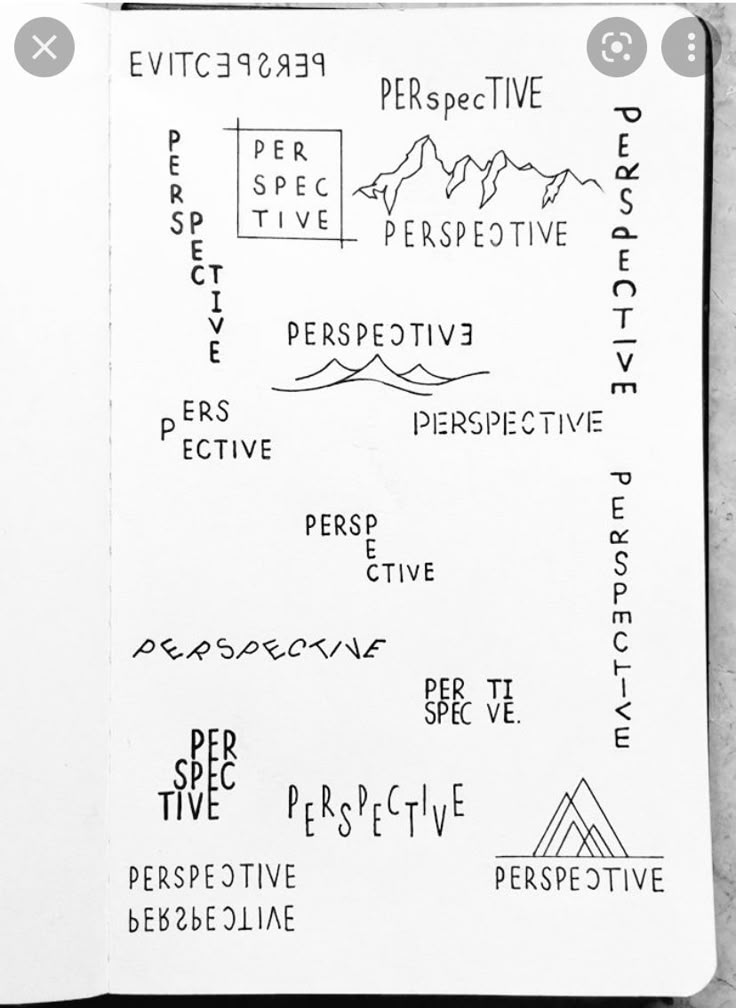 EVITCƎꟼƧЯƎꟼ
PERspecTIVE
PERS
PEC
TIVE
PER
SPEC
TIVE
PERSPEƆTIVE
PERSPECTIVE
PERSPEƆTIVƎ
PERS
ECTIVE
PERSPECTIVE
PERSP
E
CTIVE
PERSPECTIVE
PERSPECTIVE
PER TI
SPEC VE.
PER
SPEC
TIVE
PERSPECTIVE
PERSPEƆTIVE
PERSPEƆTIVE
PERSPEƆTIVE